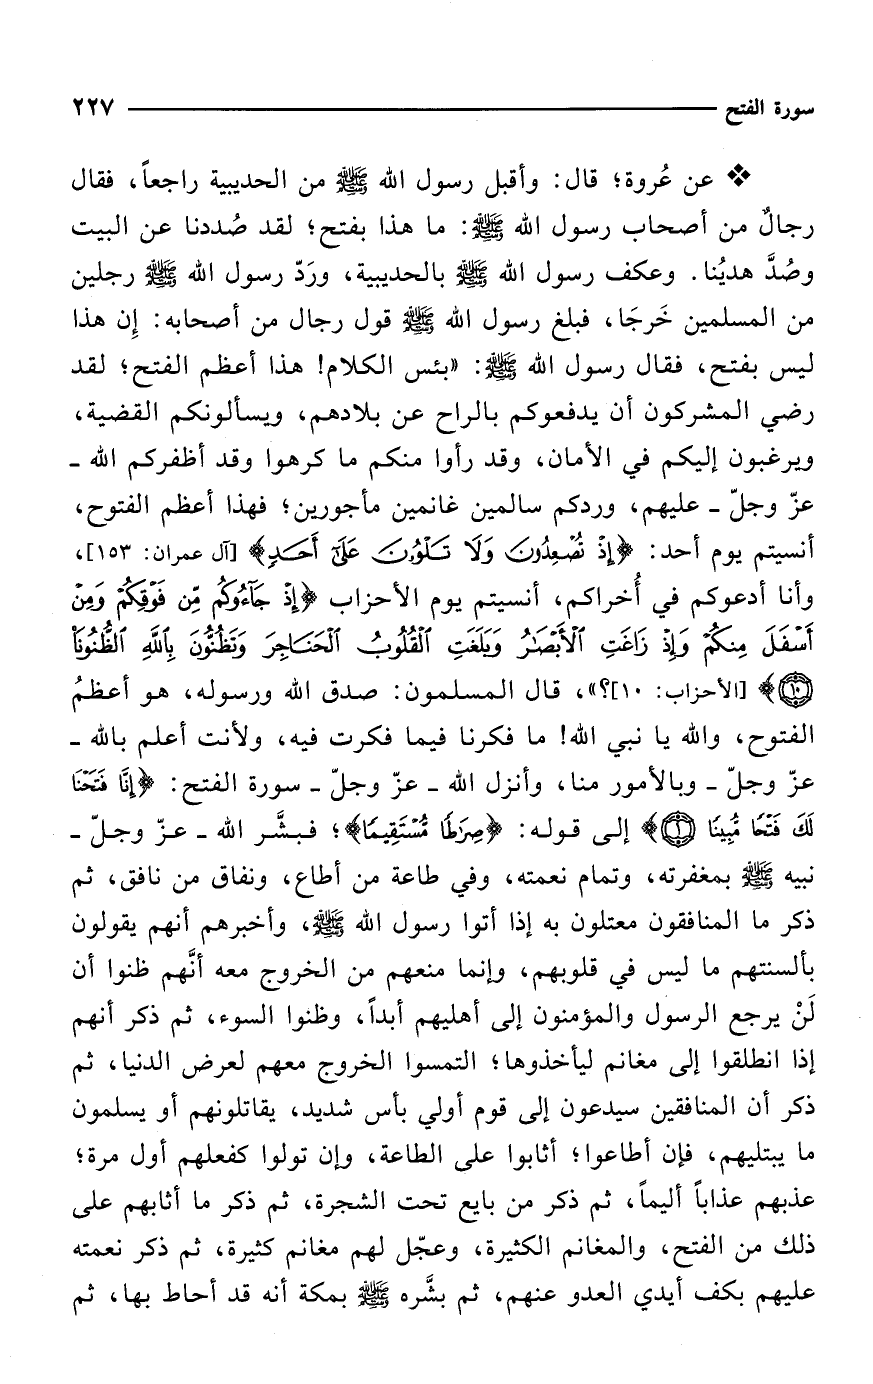 سورة الفتح ٢٢٧
❖ عن عُروة؛ قال: وأقبل رسول الله ﷺ من الحديبية راجعاً، فقال
رجالٌ من أصحاب رسول الله ﷺ: ما هذا بفتح؛ لقد صُددنا عن البيت
وصُدَّ هديُنا. وعكف رسول الله ﷺ بالحديبية، ورَدّ رسول الله ﷺ رجلين
من المسلمين خَرجَا، فبلغ رسول الله ﷺ قول رجال من أصحابه: إن هذا
ليس بفتح، فقال رسول الله ﷺ: «بئس الكلام! هذا أعظم الفتح؛ لقد
رضي المشركون أن يدفعوكم بالراح عن بلادهم، ويسألونكم القضية،
ويرغبون إليكم في الأمان، وقد رأوا منكم ما كرهوا وقد أظفركم الله ـ
عزّ وجلّ ـ عليهم، وردكم سالمين غانمين مأجورين؛ فهذا أعظم الفتوح،
أنسيتم يوم أحد: ﴿إِذْ تُصْعِدُونَ وَلَا تَلْوُۥنَ عَلَىٰٓ أَحَدٍ﴾ [آل عمران: ١٥٣]،
وأنا أدعوكم في أُخراكم، أنسيتم يوم الأحزاب ﴿إِذْ جَآءُوكُم مِّن فَوْقِكُمْ وَمِنْ
أَسْفَلَ مِنكُمْ وَإِذْ زَاغَتِ ٱلْأَبْصَٰرُ وَبَلَغَتِ ٱلْقُلُوبُ ٱلْحَنَاجِرَ وَتَظُنُّونَ بِٱللَّهِ ٱلظُّنُونَا۠
١٠﴾ [الأحزاب: ١٠]؟»، قال المسلمون: صدق الله ورسوله، هو أعظمُ
الفتوح، والله يا نبي الله! ما فكرنا فيما فكرت فيه، ولأنت أعلم بالله ـ
عزّ وجلّ ـ وبالأمور منا، وأنزل الله ـ عزّ وجلّ ـ سورة الفتح: ﴿إِنَّا فَتَحْنَا
لَكَ فَتْحًا مُّبِينًا ١﴾ إلى قوله: ﴿صِرَٰطًا مُّسْتَقِيمًا﴾؛ فبشَّر الله ـ عزّ وجلّ ـ
نبيه ﷺ بمغفرته، وتمام نعمته، وفي طاعة من أطاع، ونفاق من نافق، ثم
ذكر ما المنافقون معتلون به إذا أتوا رسول الله ﷺ، وأخبرهم أنهم يقولون
بألسنتهم ما ليس في قلوبهم، وإنما منعهم من الخروج معه أنَّهم ظنوا أن
لَنْ يرجع الرسول والمؤمنون إلى أهليهم أبداً، وظنوا السوء، ثم ذكر أنهم
إذا انطلقوا إلى مغانم ليأخذوها؛ التمسوا الخروج معهم لعرض الدنيا، ثم
ذكر أن المنافقين سيدعون إلى قوم أولي بأس شديد، يقاتلونهم أو يسلمون
ما يبتليهم، فإن أطاعوا؛ أثابوا على الطاعة، وإن تولوا كفعلهم أول مرة؛
عذبهم عذاباً أليماً، ثم ذكر من بايع تحت الشجرة، ثم ذكر ما أثابهم على
ذلك من الفتح، والمغانم الكثيرة، وعجّل لهم مغانم كثيرة، ثم ذكر نعمته
عليهم بكف أيدي العدو عنهم، ثم بشَّره ﷺ بمكة أنه قد أحاط بها، ثم